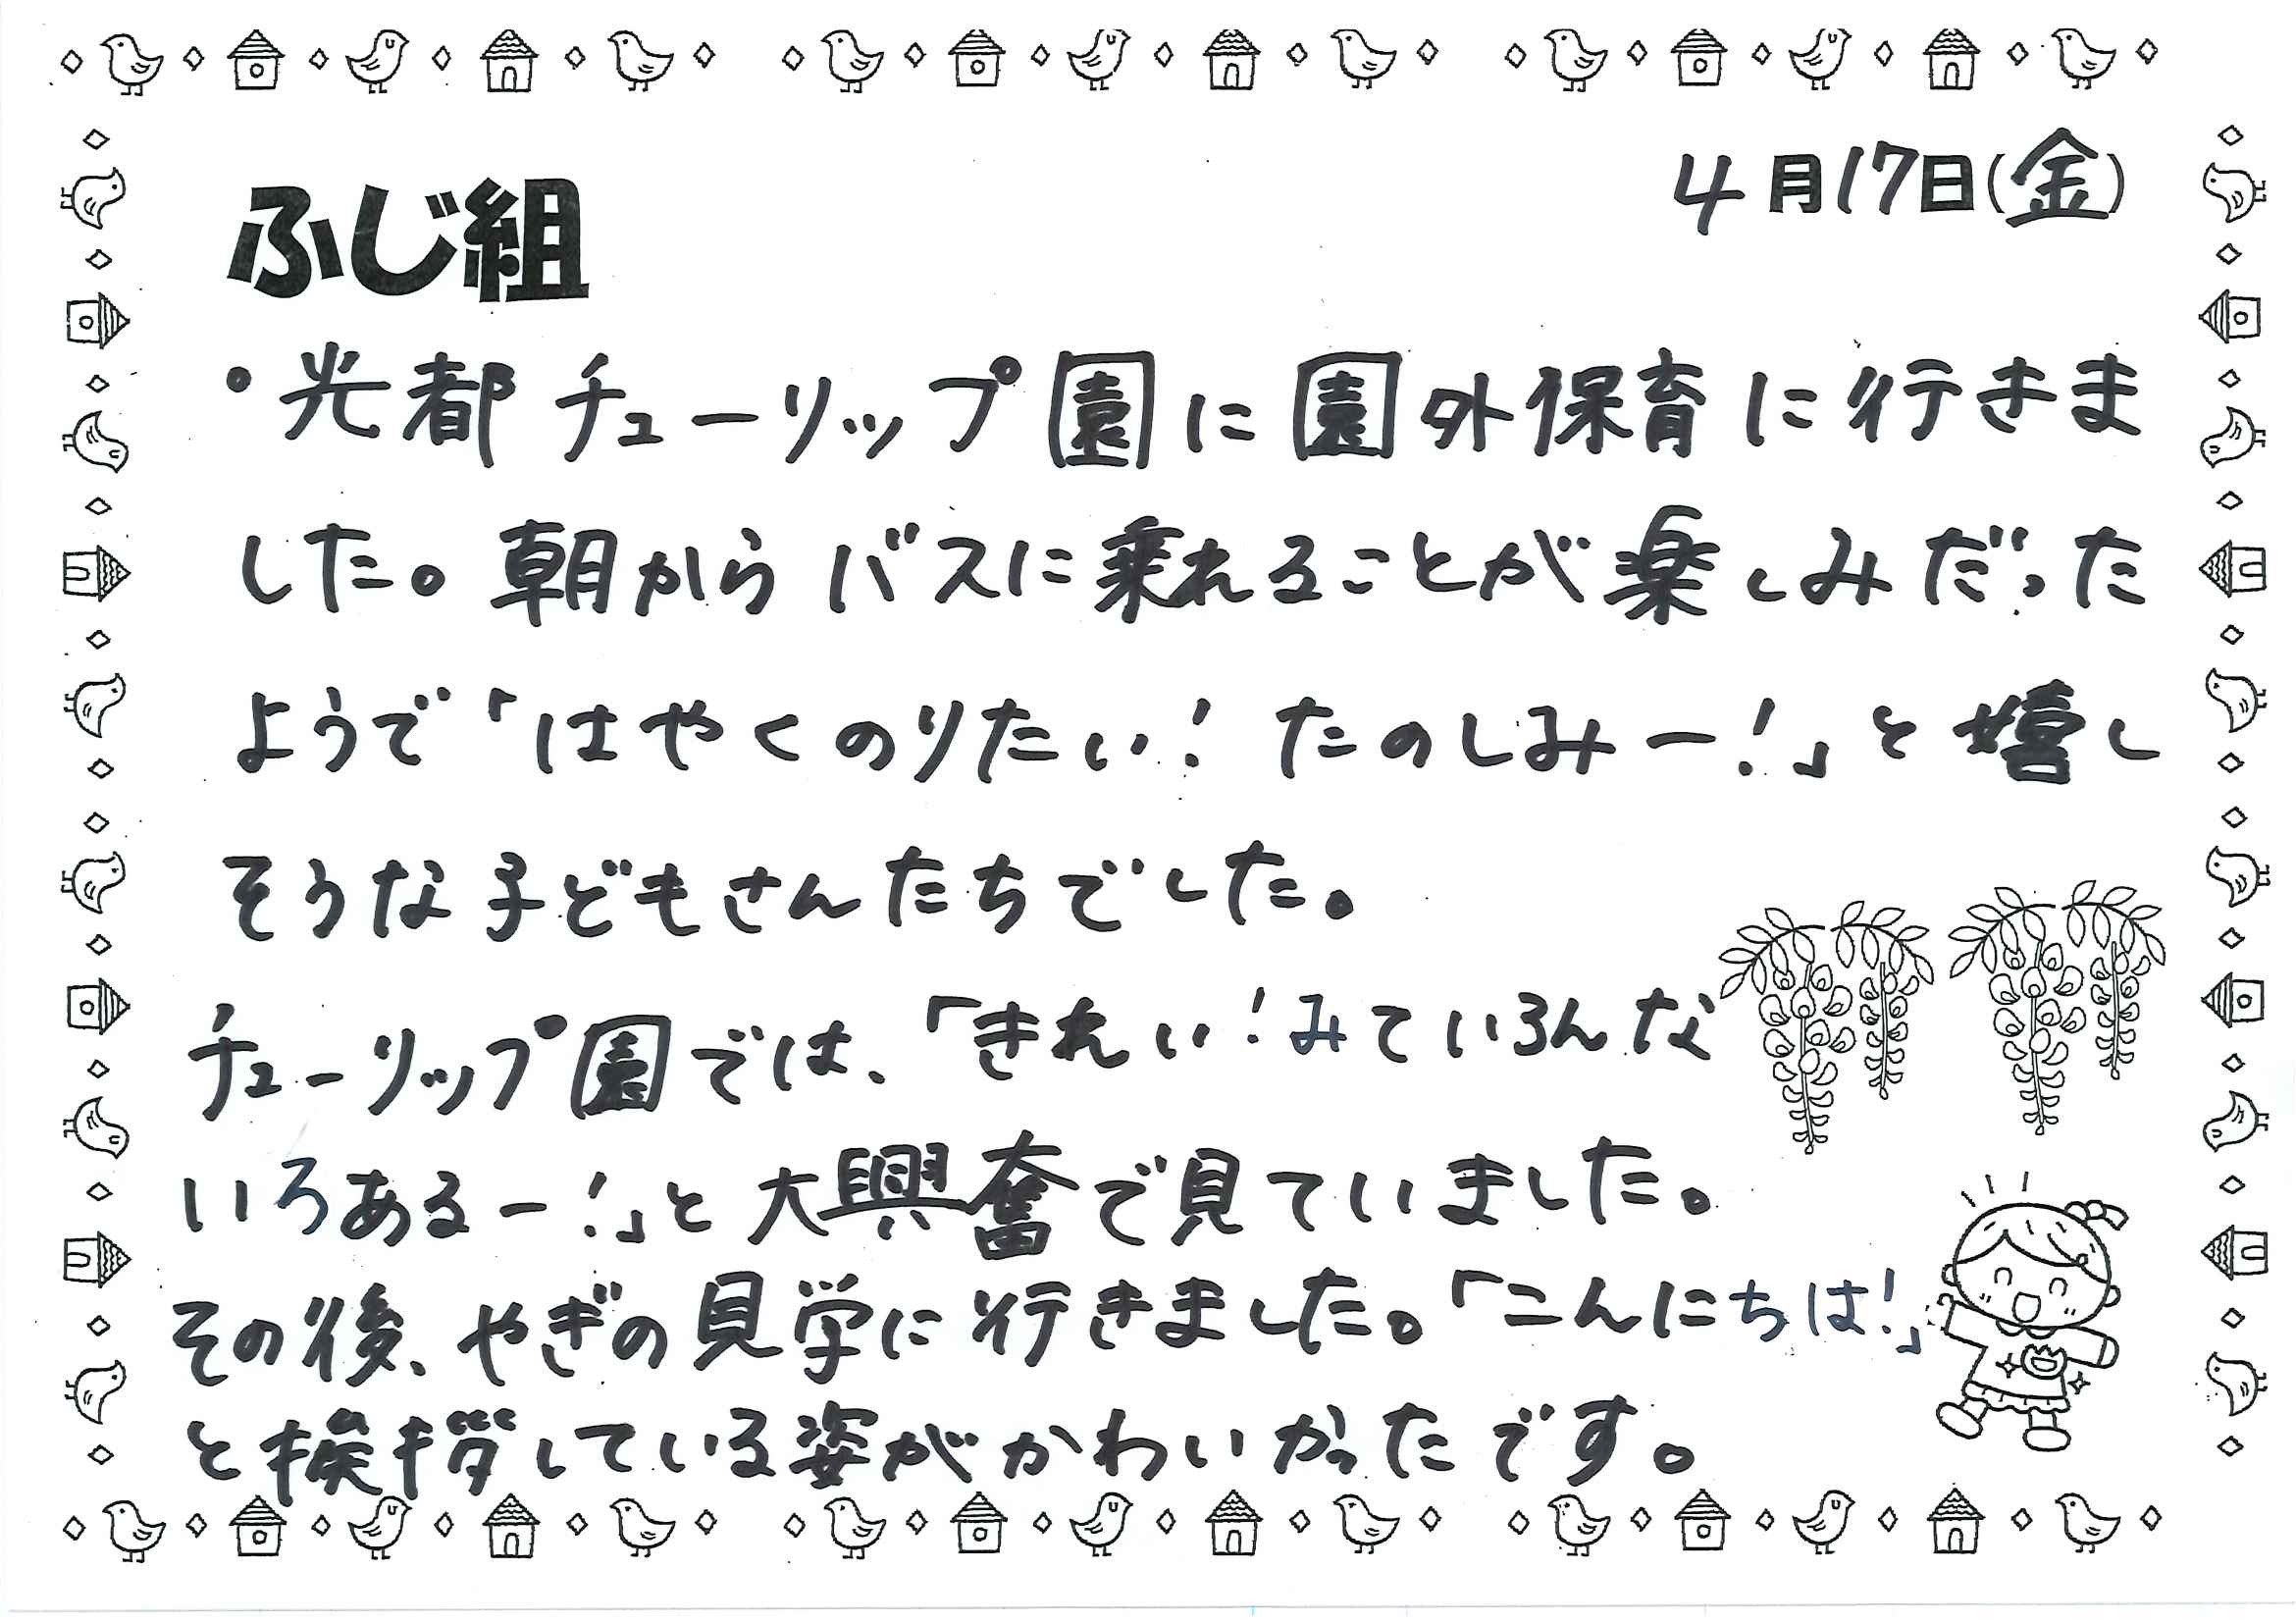 4月17日(金)
ふじ組
・光都チューリップ園に園外保育に行きま
した。朝からバスに乗れることが楽しみだった
ようで「はやくのりたい！たのしみー！」と嬉し
そうな子どもさんたちでした。
チューリップ園では、「きれい！みていろんな
いろあるー！」と大興奮で見ていました。
その後、やぎの見学に行きました。「こんにちは！」
と挨拶している姿がかわいかったです。